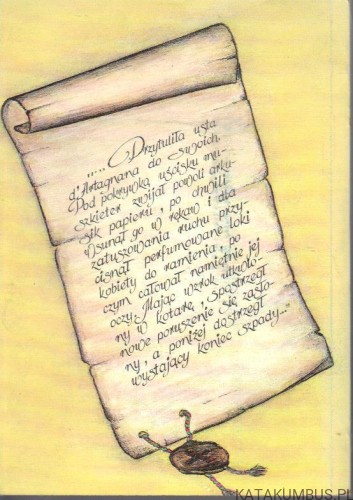 "... Przytuliła usta
d'Artagnana do swoich.
Pod pokrywką uścisku mu-
szkieter zwijał powoli arku-
sik papieru, po chwili
wsunął go w rękaw i dla
zatuszowania ruchu przy-
cisnął perfumowane loki
kobiety do ramienia, po
czym całował namiętnie jej
oczy. Mając wzrok utkwio-
ny w kotarę, spostrzegł
nowe poruszenie się zasło-
ny, a poniżej dostrzegł
wystający koniec szpady..."
KATAKUMBUS.PL